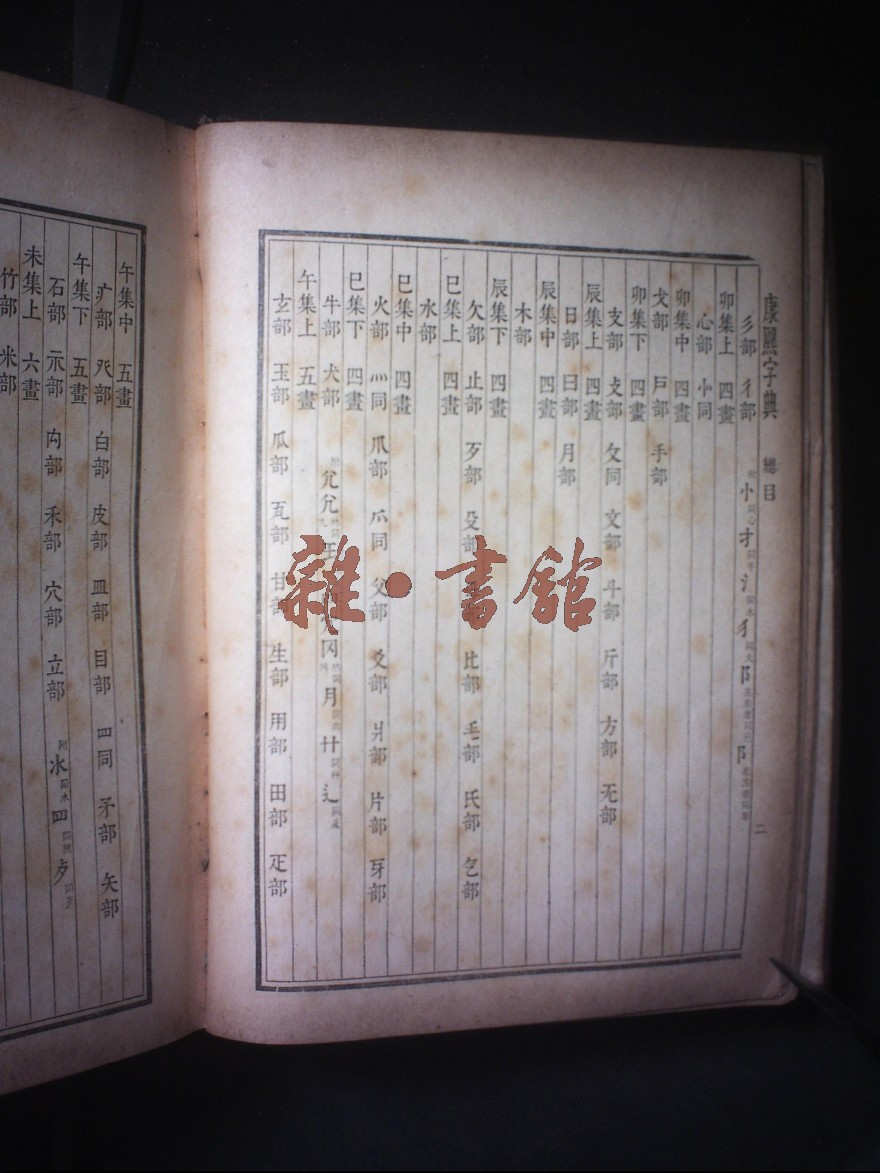 康熙字典 總目 二
彡部 彳部 附 小同心 扌同手 氵同水 犭同犬 阝 阝
卯集上 四畫
心部 小同
卯集中 四畫
戈部 戶部 手部
卯集下 四畫
支部 攴部 攵同 文部 斗部 斤部 方部 无部
辰集上 四畫
日部 曰部 月部
辰集中 四畫
木部
辰集下 四畫
欠部 止部 歹部 殳部 比部 毛部 氏部 气部
巳集上 四畫
水部
巳集中 四畫
火部 灬同 爪部 爫同 父部 爻部 爿部 片部 牙部
巳集下 四畫
牛部 犬部 附 尣 尢 王 冈 月 廾 辶
午集上 五畫
玄部 玉部 瓜部 瓦部 甘部 生部 用部 田部 疋部
午集中 五畫
疒部 癶部 白部 皮部 皿部 目部 罒同 矛部 矢部
午集下 五畫
石部 示部 禸部 禾部 穴部 立部 附 氺同水 罒 歺同歹
未集上 六畫
竹部 米部
雜·書館